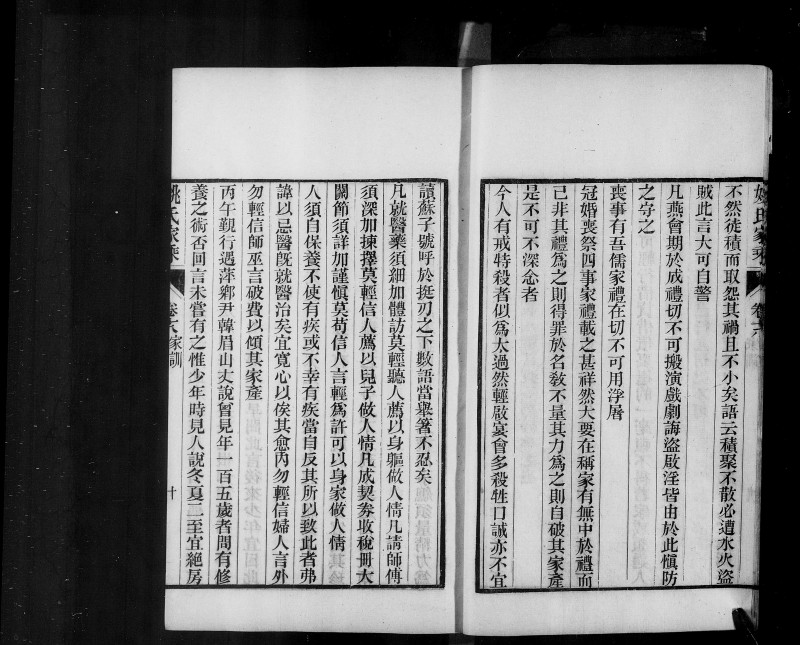 不然徒積而取怨其禍且不小矣語云積聚不散必遭水火盜
賊此言大可自警
凡燕會期於成禮切不可搬演戲劇誨盜啟淫皆由於此慎防
之守之
喪事有吾儒家禮在切不可用浮屠
冠婚喪祭四事家禮載之甚祥然大要在稱家有無中於禮而
已非其禮為之則得罪於名教不量其力為之則自破其家產
是不可不深念者
今人有戒特殺者似為太過然輕啟宴會多殺牲口誠亦不宜
讀蘇子號呼於挺刃之下數語當舉箸不忍矣
凡就醫藥須細加體訪莫輕聽人薦以身軀做人情凡請師傅
須深加揀擇莫輕信人薦以兒子做人情凡成契券收稅冊大
關節須詳加謹慎莫苟信人言輕為許可以身家做人情
人須自保養不使有疾或不幸有疾當自反其所以致此者弗
諱以忌醫既就醫治矣宜寬心以俟其愈內勿輕信婦人言外
勿輕信師巫言破費以傾其家產
丙午覲行遇萍鄉尹韓眉山丈說曾見年一百五歲者問有修
養之術否回言未嘗有之惟少年時見人說冬夏二至宜絕房
姚氏家乘 卷六 家訓 十